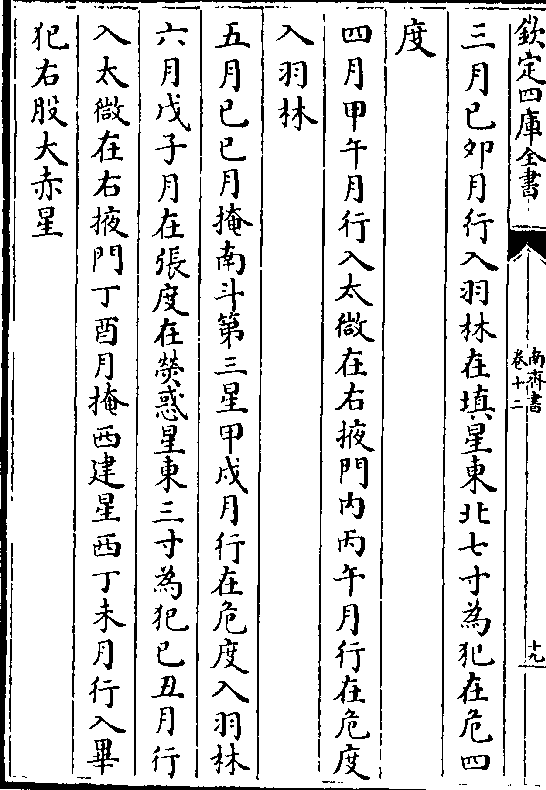 欽定四庫全書
南齊書
卷十二
十九
三月已夘月行入羽林在填星東北七寸為犯在危四
度
四月甲午月行入太微在右掖門内丙午月行在危度
入羽林
五月已巳月掩南斗第三星甲戍月行在危度入羽林
六月戊子月在張度在熒惑星東三寸為犯已丑月行
入太微在右掖門丁酉月掩西建星西丁未月行入畢
犯右股大赤星